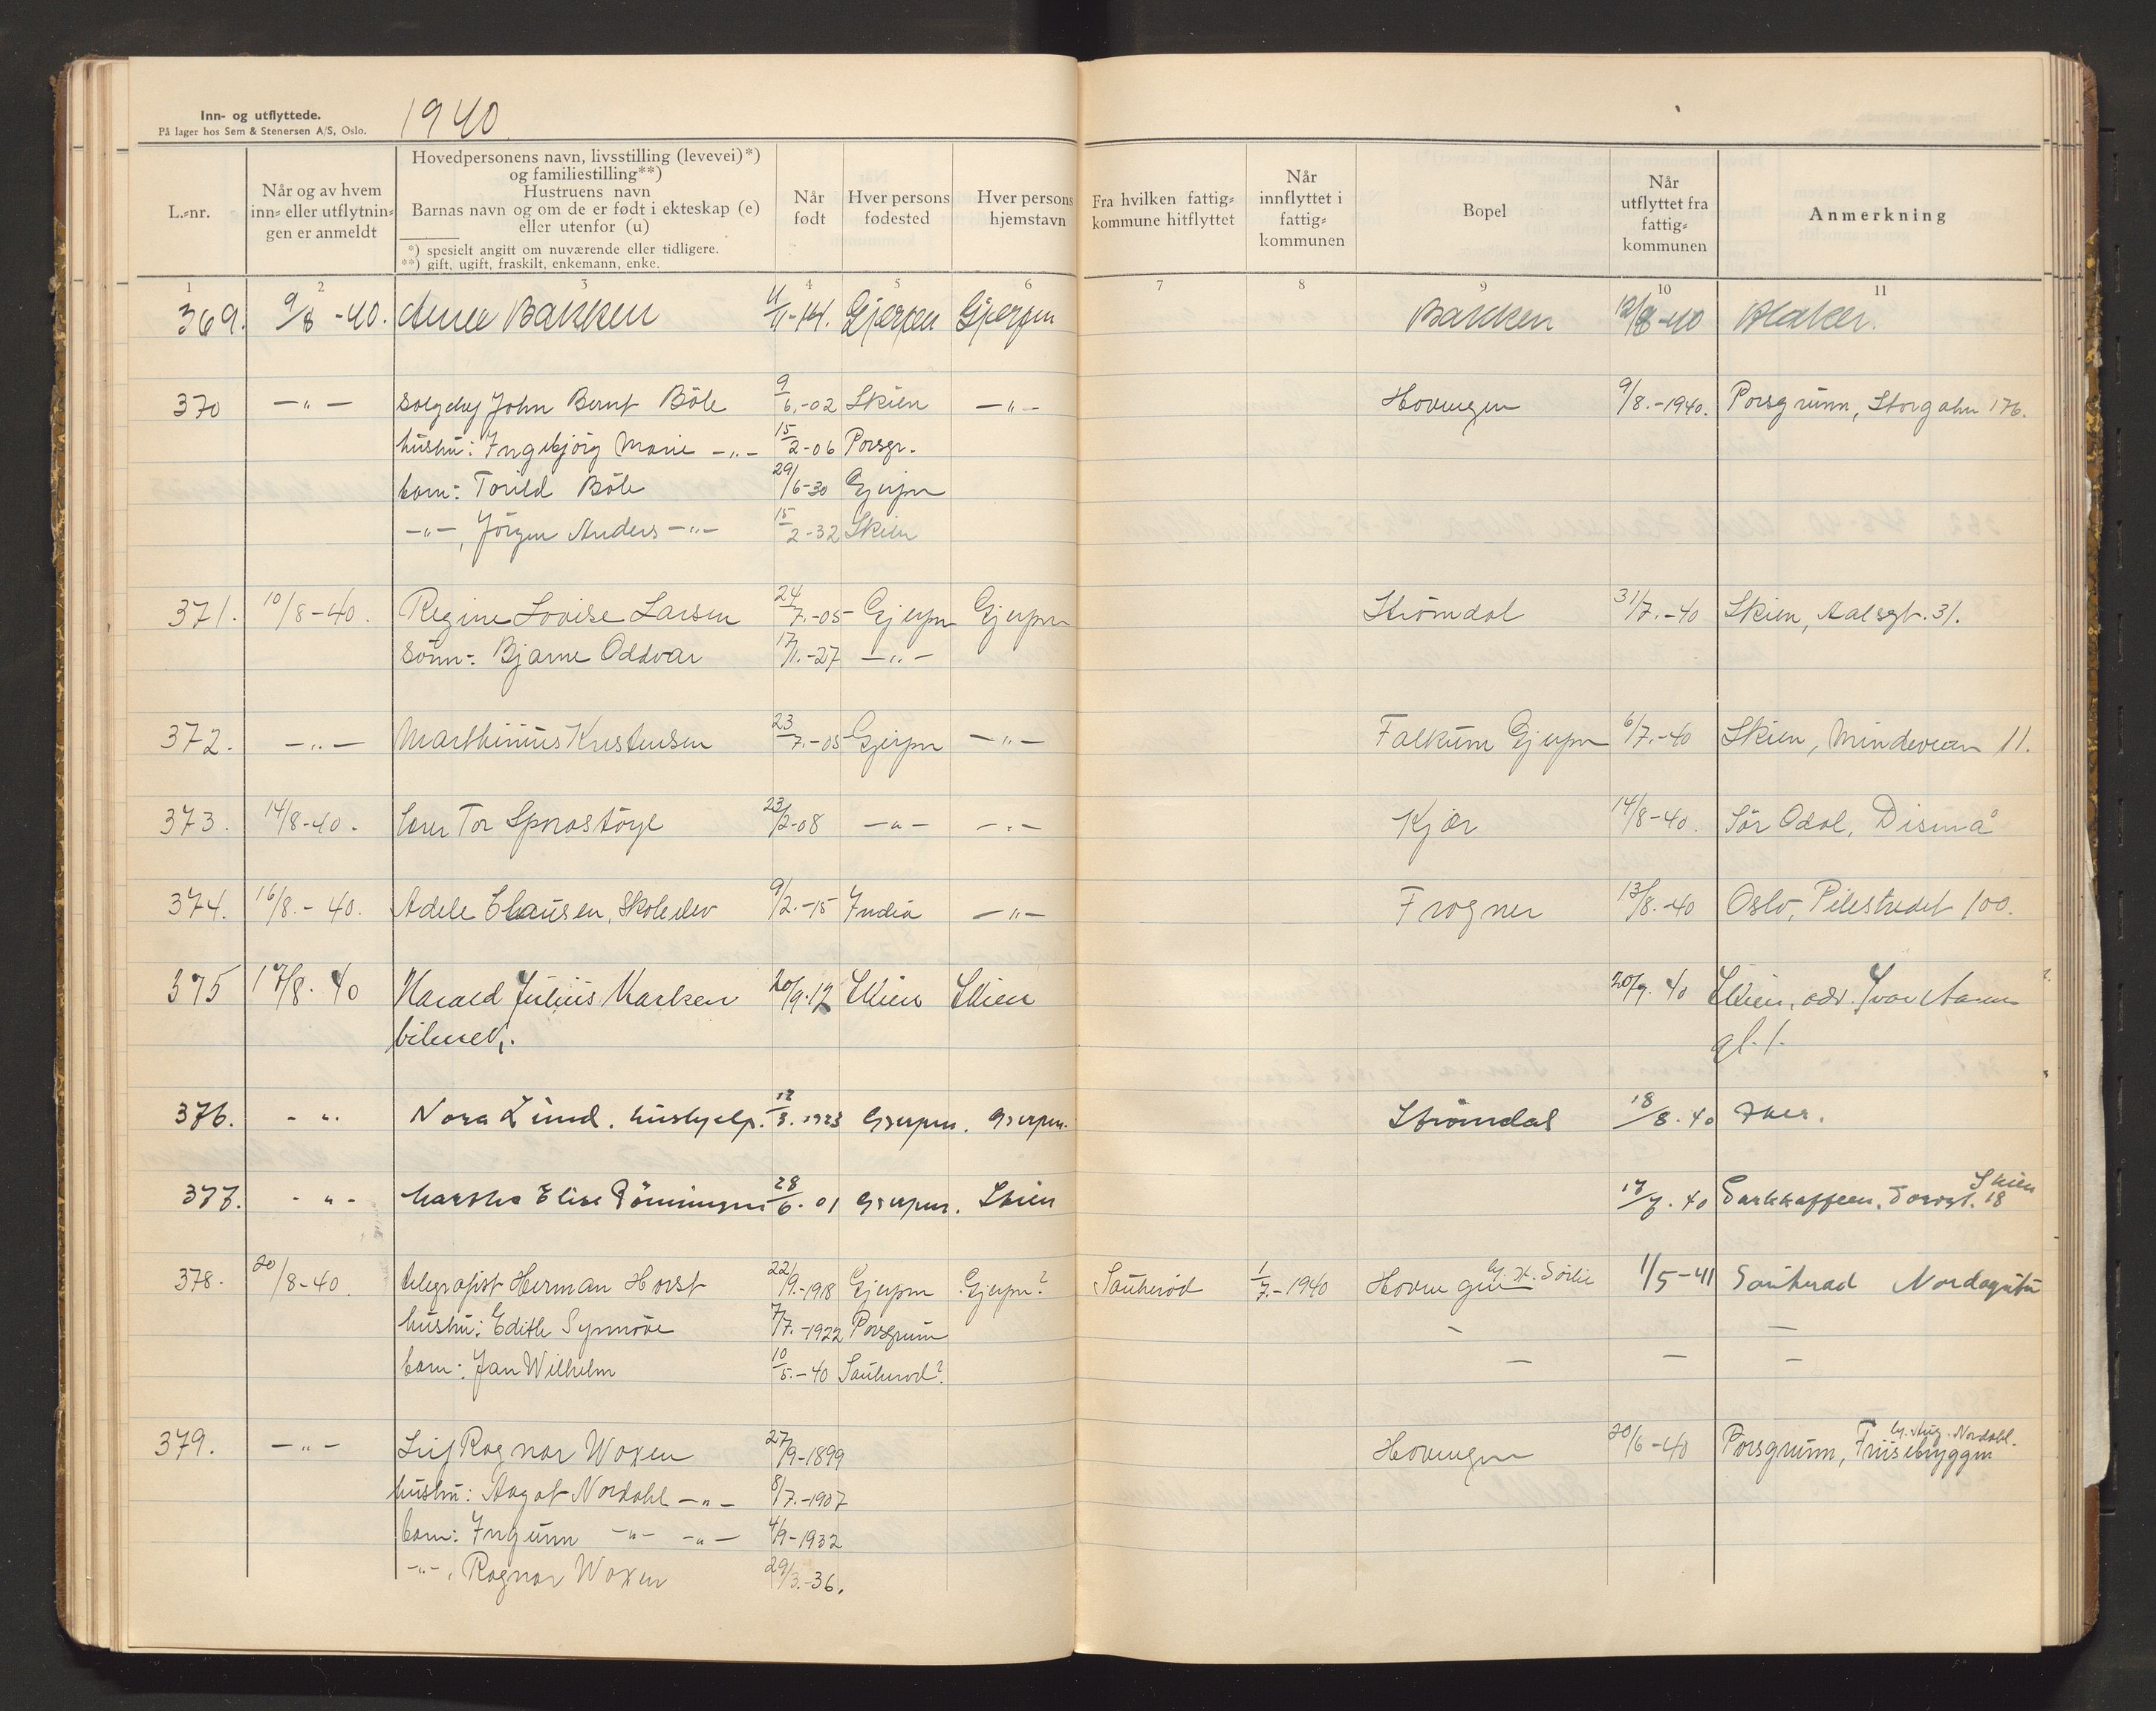 Inn- og utflyttede.
På lager hos Sem & Stenersen A/S, Oslo.
1940
L.-nr.
Når og av hvem inn- eller utflytningen er anmeldt
Hovedpersonens navn, livsstilling (levevei)*) og familiestilling**)
Hustruens navn
Barnas navn og om de er født i ekteskap (e) eller utenfor (u)
*) spesielt angitt om nuværende eller tidligere.
**) gift, ugift, fraskilt, enkemann, enke.
Når født
Hver persons fødested
Hver persons hjemstavn
Fra hvilken fattigkommune hitflyttet
Når innflyttet i fattigkommunen
Bopel
Når utflyttet fra fattigkommunen
Anmerkning
1 2 3 4 5 6 7 8 9 10 11
369. 9/8 -40. Anne Bakken 4/11-14. Gjerpen Gjerpen Bakken 12/8-40 Blaker.
370 -"- John Bernt Böle 9/6.-02 Skien -"- Hovengen 9/8.-1940. Porsgrunn, Storgaten 176.
hustru: Ingebjörg Marie -"- 15/2-06 Porsgr.
barn: Torild Böle 29/6-30 Gjerpen
-"-, Jörgen Anders -"- 15/2-32 Skien
371. 10/8-40. Regine Lovise Larsen 24/7.-05 Gjerpen Gjerpen Strömdal 31/7.-40 Skien, Aalsgt. 31.
sönn: Bjarne Oddvar 17/1.-27 -"-
372. -"- Marthinius Kristensen 23/7.-05 Gjerpen -"- Falkum Gjerpen 6/7.-40 Skien, Mindeveien 11.
373. 14/8-40. Tor 23/2-08 -"- -"- Kjær 14/8-40. Sör Odal, Disenå
374. 16/8.-40. Adele Clausen, Skoleelev 9/2.-15 India -"- Frogner 13/8.-40 Oslo, Pilestredet 100.
375 17/8. 40 Harald Julius Karlsen 20/9.12 Skien Skien 20/7. 40 Skien, adr. Ivar Aasens
gt. 1.
376. -"- Nora Lund. hushjelp. 12/3. 1923 Gjerpen. Gjerpen. Strömdal 18/8. 40 Aker.
377. -"- Martha Elise Rönningen 28/6. 01 Gjerpen. Skien 17/7. 40 Parkkaffeen. Torvgt. 18 Skien
378. 20/8-40. telegrafist Herman Horst 22/9.-1918 Gjerpen Gjerpen? Sauherad 1/7.-1940 Hovengen H. Sörlie 1/5-41 Sauherad Nordagutu
hustru: Edith Synnöve 7/7.-1922 Porsgrunn - -
barn: Jan Wilhelm 10/5.-40 Sauherad? - - -
379. -"- Leif Ragnar Woxen 27/9-1899 Hovengen 20/6-40 Porsgrunn, Friisebryggen Aug. Nordahl.
hustru: Aagot Nordahl -"- 8/7.-1907
barn: Ingunn -"- -"- 4/9-1932
-"-, Ragnar Woxen 29/3.-36.